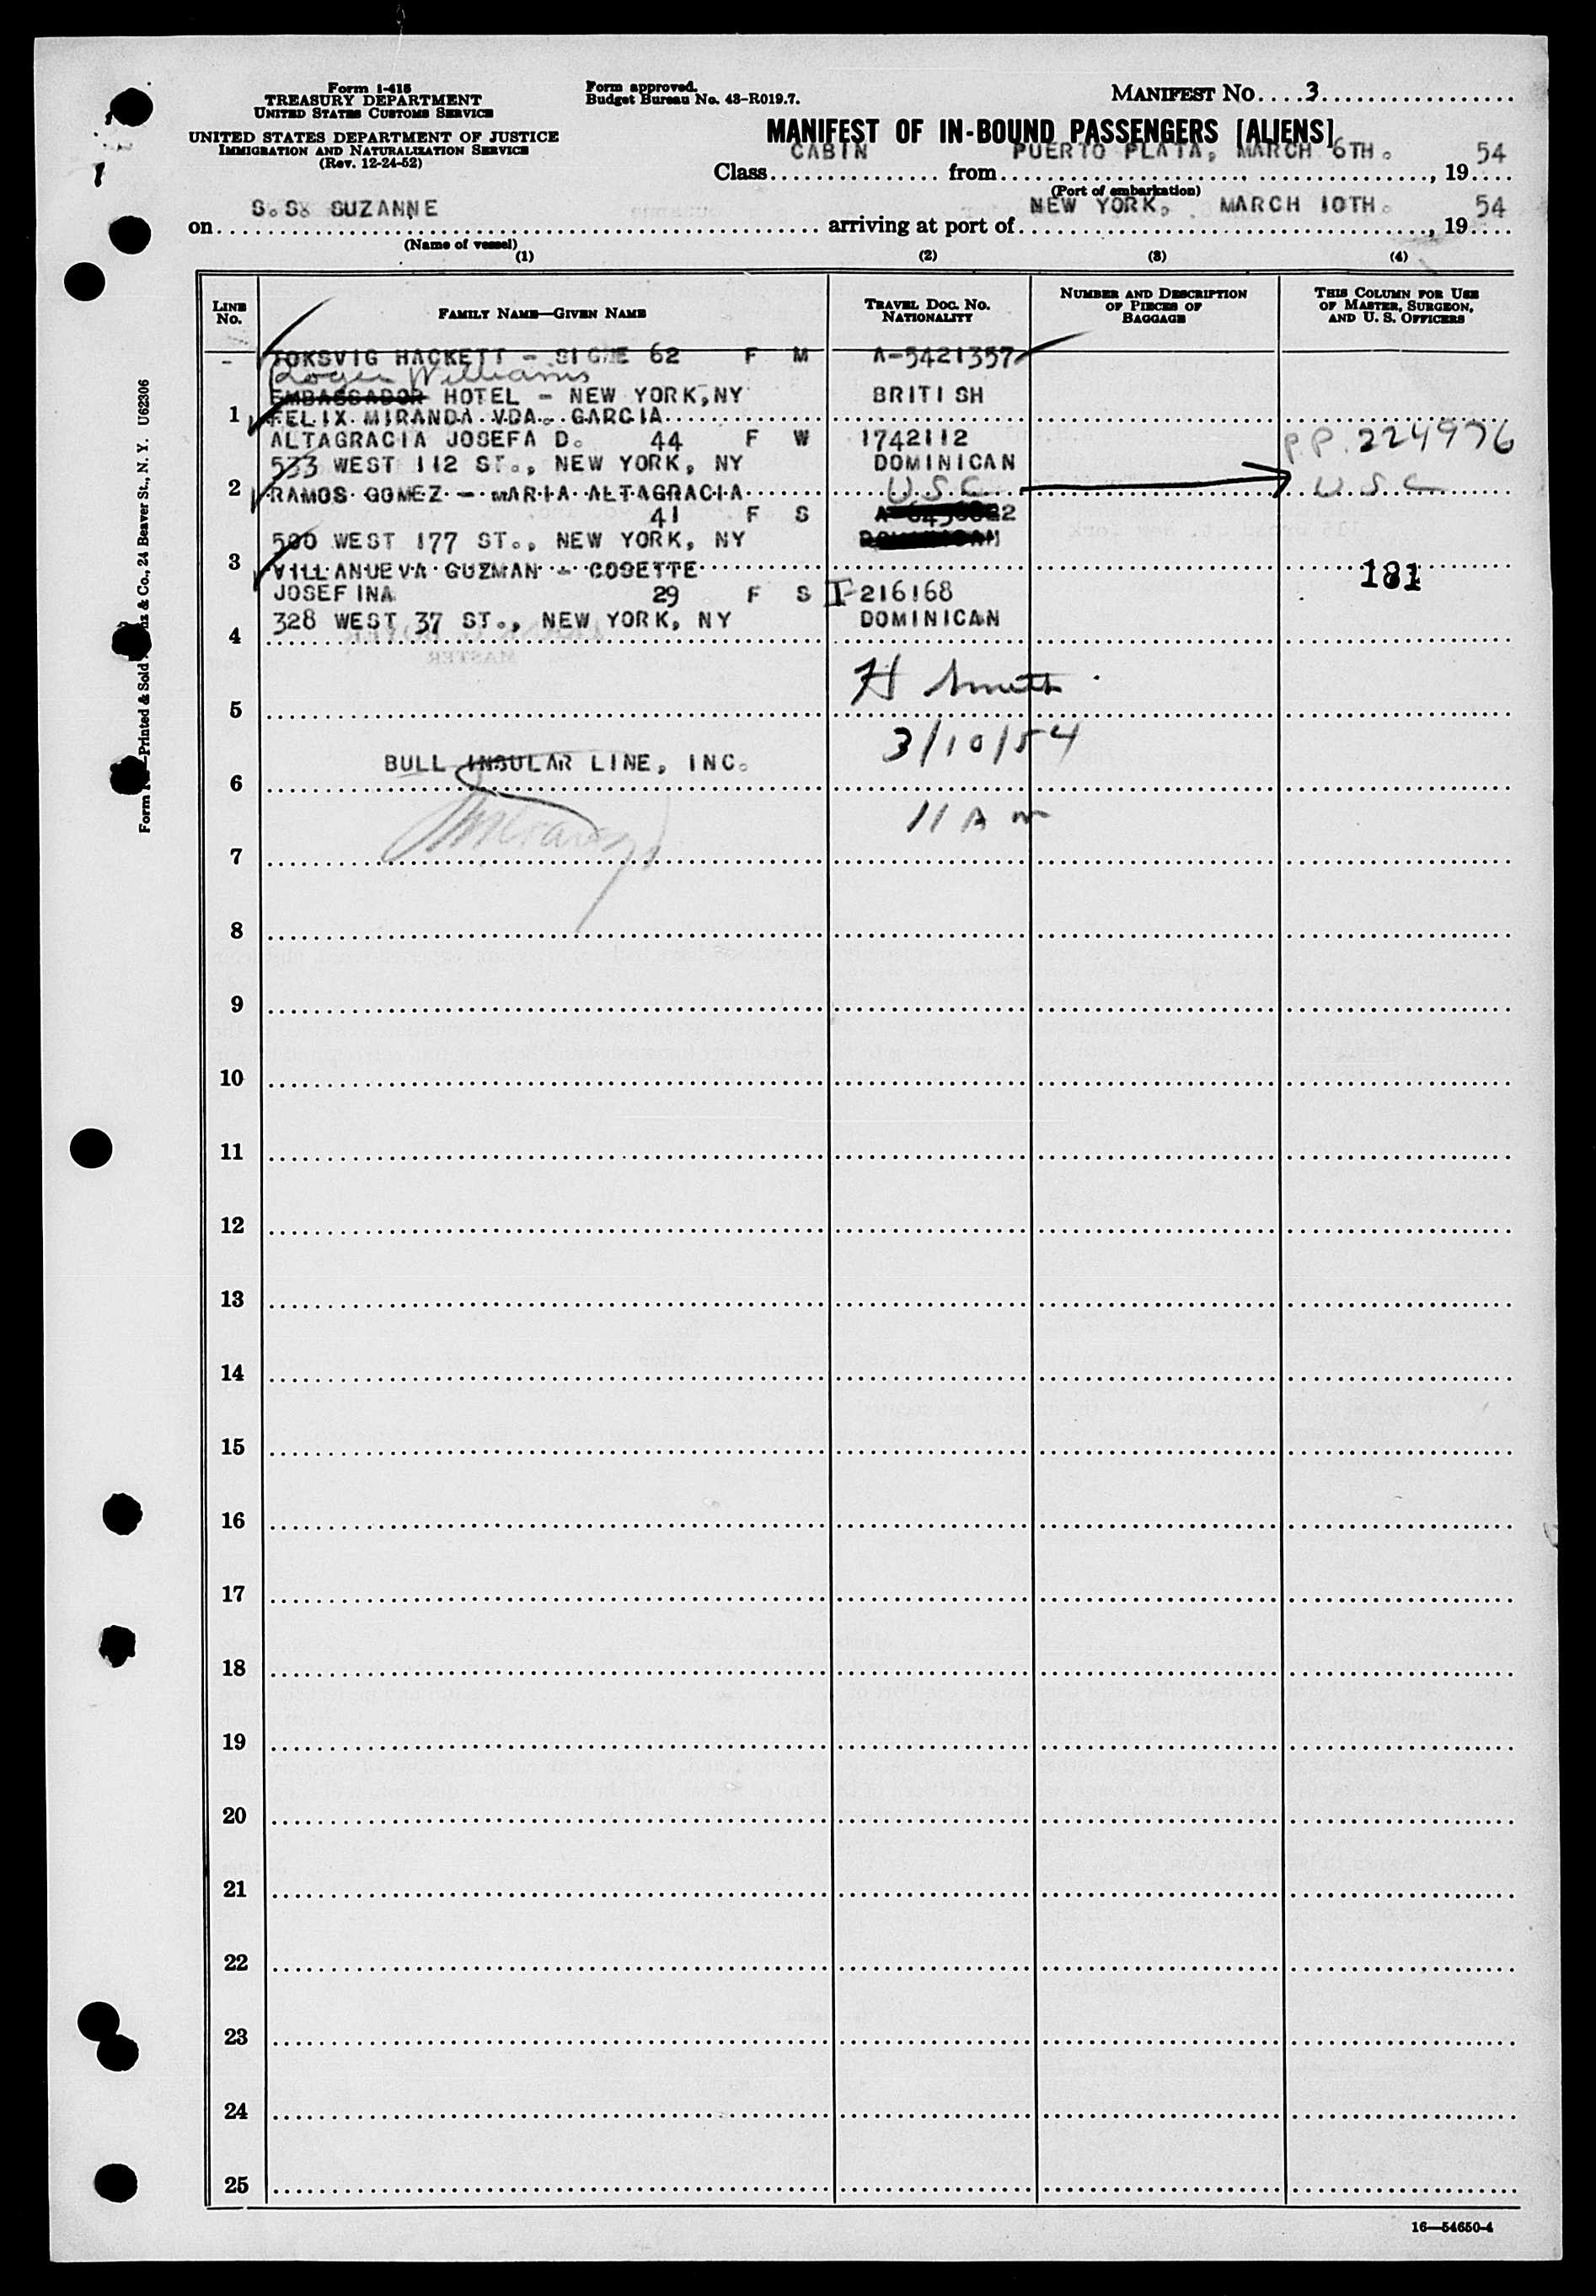 Form I-415
TREASURY DEPARTMENT
UNITED STATES CUSTOMS SERVICE
UNITED STATES DEPARTMENT OF JUSTICE
IMMIGRATION AND NATURALIZATION SERVICE
(Rev. 12-24-52)
Form approved.
Budget Bureau No. 43-R019.7.
MANIFEST NO....3
MANIFEST OF IN-BOUND PASSENGERS [ALIENS]
Class CABIN from PUERTO PLATA, MARCH 6TH. , 19 54
(Port of embarkation)
on S.S. SUZANNE arriving at port of NEW YORK, MARCH 10TH. , 19 54
(Name of vessel)
(1) (2) (3) (4)
LINE No. FAMILY NAME—GIVEN NAME TRAVEL DOC. NO. NATIONALITY NUMBER AND DESCRIPTION OF PIECES OF BAGGAGE THIS COLUMN FOR USE OF MASTER, SURGEON, AND U. S. OFFICERS
TOKSVIG HACKETT - SIGNE 62 F M A-5421357
Roger Williams
EMBASSADOR HOTEL - NEW YORK, NY BRITISH
1 FELIX MIRANDA VDA. GARCIA
ALTAGRACIA JOSEFA D. 44 F W 1742112 P.P. 224976
533 WEST 112 ST., NEW YORK, NY DOMINICAN
2 RAMOS GOMEZ - MARIA ALTAGRACIA U.S.C. U S C
41 F S
500 WEST 177 ST., NEW YORK, NY
3 VILLANUEVA GUZMAN - COSETTE 181
JOSEFINA 29 F S I-216168
328 WEST 37 ST., NEW YORK, NY DOMINICAN
4
MASTER
H Smith
5
3/10/54
BULL INSULAR LINE, INC.
6
11 A m
7
8
9
10
11
12
13
14
15
16
17
18
19
20
21
22
23
24
25
16—54650-4
Printed & Sold & Co., 24 Beaver St., N. Y. U62306